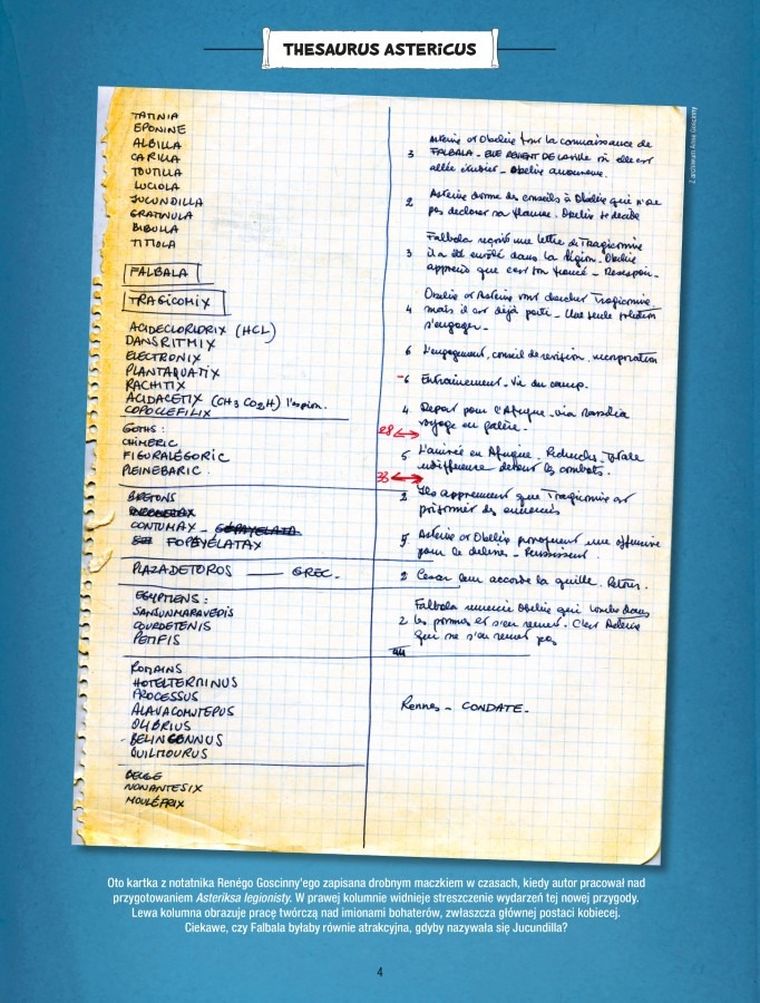 THESAURUS ASTERICUS
TATINIA
EPONINE
ALBILLA
CARILLA
TOUTILLA
LUCIOLA
JUCUNDILLA
GRATNULA
BIBULLA
TITIOLA
FALBALA
TRAGICOMIX
ACIDECLORIDRIX (HCL)
DANSRITMIX
ELECTRONIX
PLANTAQUATIX
RACHITIX
ACIDACETIX (CH3 CO2H) l'espion.
COPOCLEFILIX
GOTHS :
CHIMERIC
FIGURALÉGORIC
PLEINEBARIC .
BRETONS
CONTUMAX -
FOPEYÉLATAX
PLAZADETOROS — GREC.
EGYPTIENS :
SANSUNMARAVEDIS
COURDETENIS
PETITFIS
ROMAINS
HOTELTERMINUS
PROCESSUS
ALAVACOMJTEPUS
OLIBRIUS
- BELINGONNUS
QUILTOURUS
BELGE
NONANTESIX
MOULÉFRIX
3 Asterix et Obelix font la connaissance de
FALBALA - ELLE REVIENT DE LA ville où elle est
allée étudier - Obelix amoureux.
2 Asterix donne des conseils à Obelix qui n'ose
pas declarer sa flamme. Obelix se decide
3 Falbala reçoit une lettre de Tragicomix
il a été enrôlé dans la légion. Obelix
apprend que c'est son fiancé - Desespoir -
4 Obelix et Asterix vont chercher Tragicomix
mais il est déjà parti - Une seule solution
s'engager -
6 L'engagement, conseil de revision, incorporation
-6 Entrainement - Vie du camp.
4 Depart pour l'Afrique - via Massilia
voyage en galère.
28
5 L'arrivée en Afrique. Recherches - totale
indifference devant les combats.
33
2 Ils apprennent que Tragicomix est
prisonnier des ennemis
5 Asterix et Obelix provoquent une offensive
pour le delivrer - Reussissent.
2 Cesar leur accorde la quille. Retour.
2 Falbala remercie Obelix qui tombe dans
les pommes et s'en remet. C'est Asterix
qui ne s'en remet pas
44
Rennes - CONDATE -
Z archiwum Anne Goscinny
Oto kartka z notatnika Renégo Goscinny'ego zapisana drobnym maczkiem w czasach, kiedy autor pracował nad
przygotowaniem Asteriksa legionisty. W prawej kolumnie widnieje streszczenie wydarzeń tej nowej przygody.
Lewa kolumna obrazuje pracę twórczą nad imionami bohaterów, zwłaszcza głównej postaci kobiecej.
Ciekawe, czy Falbala byłaby równie atrakcyjna, gdyby nazywała się Jucundilla?
4